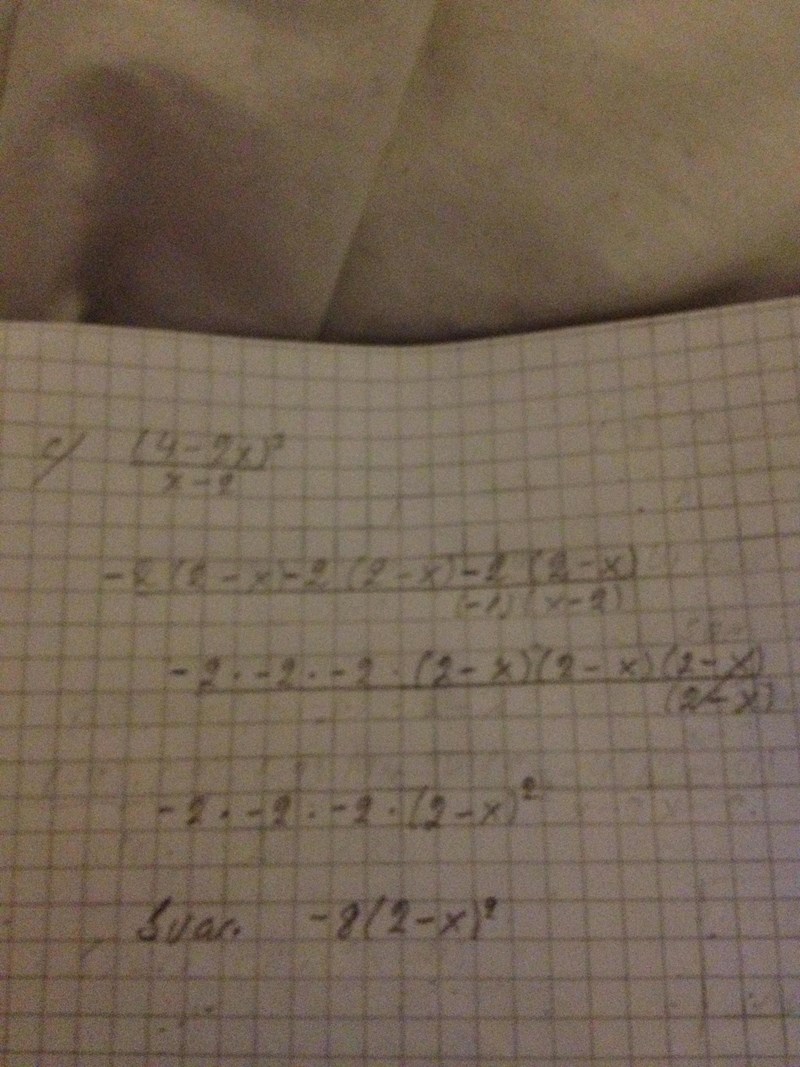 c) (4-2x)³
x-2
-2(2-x)-2(2-x)-2(2-x)
(-1)(x-2)
-2·-2·-2·(2-x)(2-x)(2-x)
(2-x)
-2·-2·-2·(2-x)²
Svar. -8(2-x)²